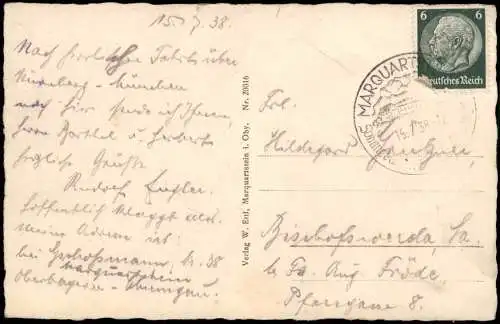 15. 7. 38.
Nach herrlicher Fahrt über
Nürnberg - München
nach hier sende ich Ihnen,
Herrn Barthel und Herbert
herzliche Grüße
Rudolf
Hoffentlich klappt alles.
Meine Adresse ist:
bei Nr. 38
Marquartstein
Oberbayern - Chiemgau.
Verlag W. Ertl, Marquartstein i. Oby. Nr. 20016
6 6
Deutsches Reich
MARQUART
15. 7. 38
Frl.
Hildegard
Bischofswerda, Sa.
b. Fa. Aug. Fröde,
Pfarrgasse 8.